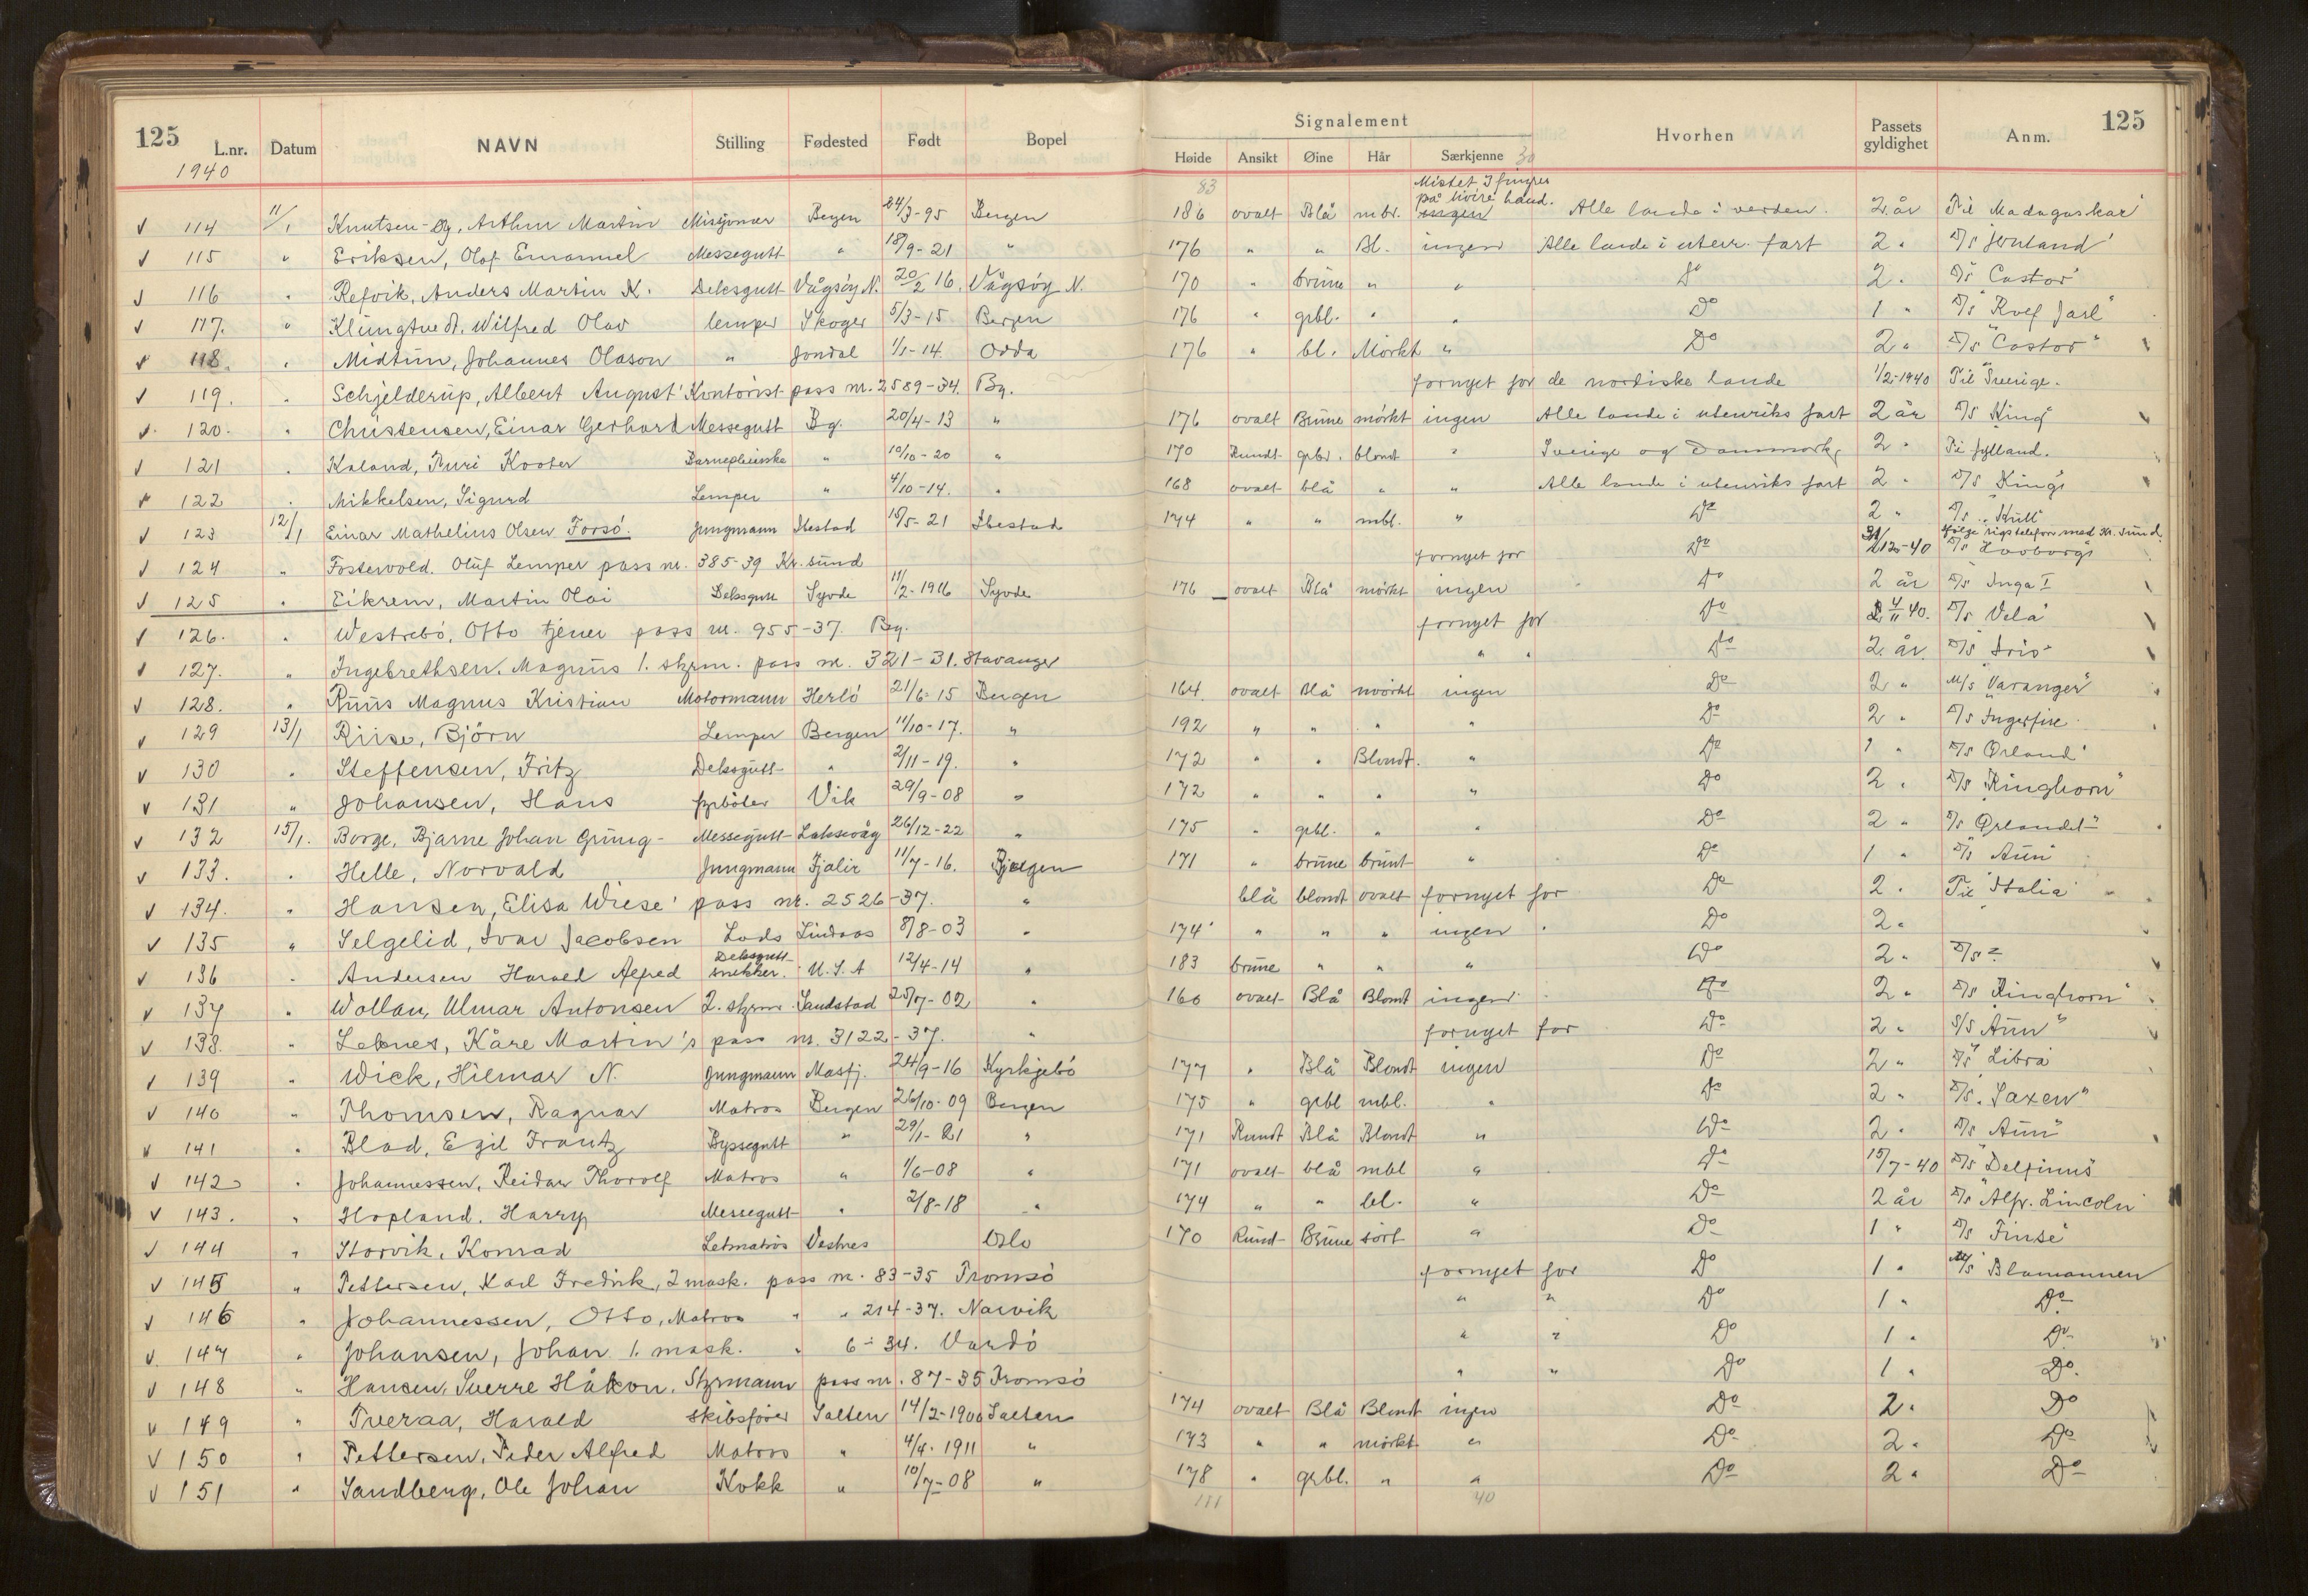 125 L.nr. Datum NAVN Stilling Fødested Født Bopel Signalement Høide Ansikt Øine Hår Særkjenne Hvorhen Passets gyldighet Anm. 125
1940
83 Mistet 3 fingre
på høire hånd.
v 114 11/1 Knutsen-Øy, Arthur Martin Misjonær Bergen 24/3-95 Bergen 186 ovalt Blå mbr. ingen Alle lande i verden. 2 år Til Madagaskar
v 115 " Eriksen, Olaf Emanuel Messegutt " 18/9-21 " 176 " " Bl. ingen Alle lande i utenr. fart 2 " D/S
v 116 " Refvik, Anders Martin K. Deksgutt Vågsøy N. 20/2 16. Vågsøy N. 170 " brune " " Do 2 " D/S Castor
v 117. " Klungtvedt, Wilfred Olav lemper Skoger 5/3-15 Bergen 176 " grbl. " " Do 1 " D/S "Rolf Jarl"
v 118. " Midtun, Johannes Olason " Jondal 1/1-14. Odda 176 " bl. Mörkt " Do 2 " D/S "Castor"
v 119. " Schjelderup, Albert August Kontorist pass nr. 2589-34. Bg. fornyet for de nordiske lande 1/2-1940 Til Sverige.
v 120. " Christensen, Einar Gerhard Messegutt Bg. 20/4-13 " 176 ovalt Brune mörkt ingen Alle lande i utenriks fart 2 år D/S King
v 121 " Kaland, Turi Barnepleierske " 10/10-20 " 170 Rundt grbl. blondt " Sverige og Danmark 2 " Til Jylland.
v 122 " Mikkelsen, Sigurd Lemper " 4/10-14. " 168 ovalt blå " " Alle lande i utenriks fart 2 " D/S King
v 123 12/1 Einar Mathelius Olsen Forsö. Jungmann Ibestad 15/5-21 Ibestad 174 " " mbl. " Do 2 " D/S
ifølge rigstelefon med Kr. sund.
v 124 " Fostervold. Oluf Lemper pass nr. 385-39 Kr. sund fornyet for Do 31/12-40 D/S
v 125 " Eikrem, Martin Olai Deksgutt Syvde 11/2-1916 Syvde 176 ovalt Blå mörkt ingen Do 2 år D/S Inga I
v 126. " Westrebö, Otto tjener pass nr. 955-37. Bg. fornyet for Do 40. D/S Vela
v 127. " Ingebrethsen, Magnus 1. styrm. pass nr. 321-31. Stavanger " " Do 2 år D/S Iris
v 128. " Ruus Magnus Kristian Motormann Herlö 21/6-15 Bergen 164 ovalt Blå mörkt ingen Do 2 " M/S "Varanger"
v 129 13/1 Riise, Björn Lemper Bergen 11/10-17. " 192 " " " " Do 2 " D/S Ingerfire
v 130 " Steffensen, Fritz Deksgutt " 2/11-19. " 172 " " Blondt. " Do 1 " D/S Ørland
v 131 " Johansen, Hans fyrböter Vik 29/9-08 " 172 " " " " Do 2 " D/S Ringhorn"
v 132 15/1. Borge, Bjarne Johan Grung- Messegutt Laksevåg 26/12-22 " 175 " grbl. " " Do 2 " D/S Ørlandet"
v 133. " Helle, Norvald Jungmann Fjaler 11/7-16. Bergen 171 " brune brunt " Do 1 " D/S Aun
v 134. " Hansen, Elisa Wiese pass nr. 2526-37. " blå blondt ovalt fornyet for Do 2 " Til Italia
v 135 " Selgelid, Ivar Jacobsen Lods Lindaas 8/8-03 " 174 " " " ingen Do 2 "
Deksgutt
v 136 " Andersen Harald Alfred snekker. U.S.A 12/4-14 " 183 brune " " " Do 2 " D/S ?
v 137 " Wollan, Ulmar Antonsen 2. styrm Sandstad 25/7-02 " 160 ovalt Blå Blondt ingen Do 2 " D/S Ringhorn"
v 138. " Leknes, Kåre Martin's pass nr. 3122-37. " fornyet for Do 2 " S/S Aun"
v 139 " Wick, Hilmar N. Jungmann Masfj. 24/9-16 Kyrkjebö 177 " Blå Blondt ingen Do 2 " D/S Libra
v 140 " Thomsen, Ragnar Matros Bergen 26/10-09 Bergen 175 " grbl mbl. " Do 2 " D/S "Saxen"
v 141 " Blad, Egil Frantz Byssegutt " 29/1-21 " 171 Rundt Blå Blondt " Do 2 " D/S Aun"
v 142 " Johannessen, Reidar Thorolf Matros " 1/6-08 " 171 ovalt blå mbl " Do 15/7-40 D/S "Delfinus
v 143. " Hopland. Harry Messegutt " 2/8-18 " 174 " " bl. " Do 2 år D/S "Alfr. Lincoln
v 144 " Storvik, Konrad Letmatros Vestnes Oslo 170 Rund Brune sort " Do 1 " D/S Finse
v 145 " Pettersen, Karl Fredrik, 2 mask. pass nr. 83-35 Tromsö fornyet for Do 1 " M/S Blamannen
v 146 " Johannessen, Otto, Matros " " 214-37. Narvik " " Do 1 " Do
v 147 " Johansen, Johan 1. mask. " 6-34. Vardö " " Do 1 " Do
v 148 " Hansen, Sverre Håkon, Styrmann pass nr. 87-35 Tromsö " " Do 1 " Do.
v 149 " Tveraa, Harald skibsfører Salten 14/2-1900 Salten 174 ovalt Blå Blondt ingen Do 2 " Do
v 150 " Pettersen, Peder Alfred Matros " 4/4-1911 " 173 " " mörkt " Do 2 " Do
v 151 " Sandberg, Ole Johan Kokk " 10/7-08 " 178 " grbl. " " Do 2 " Do
111 40